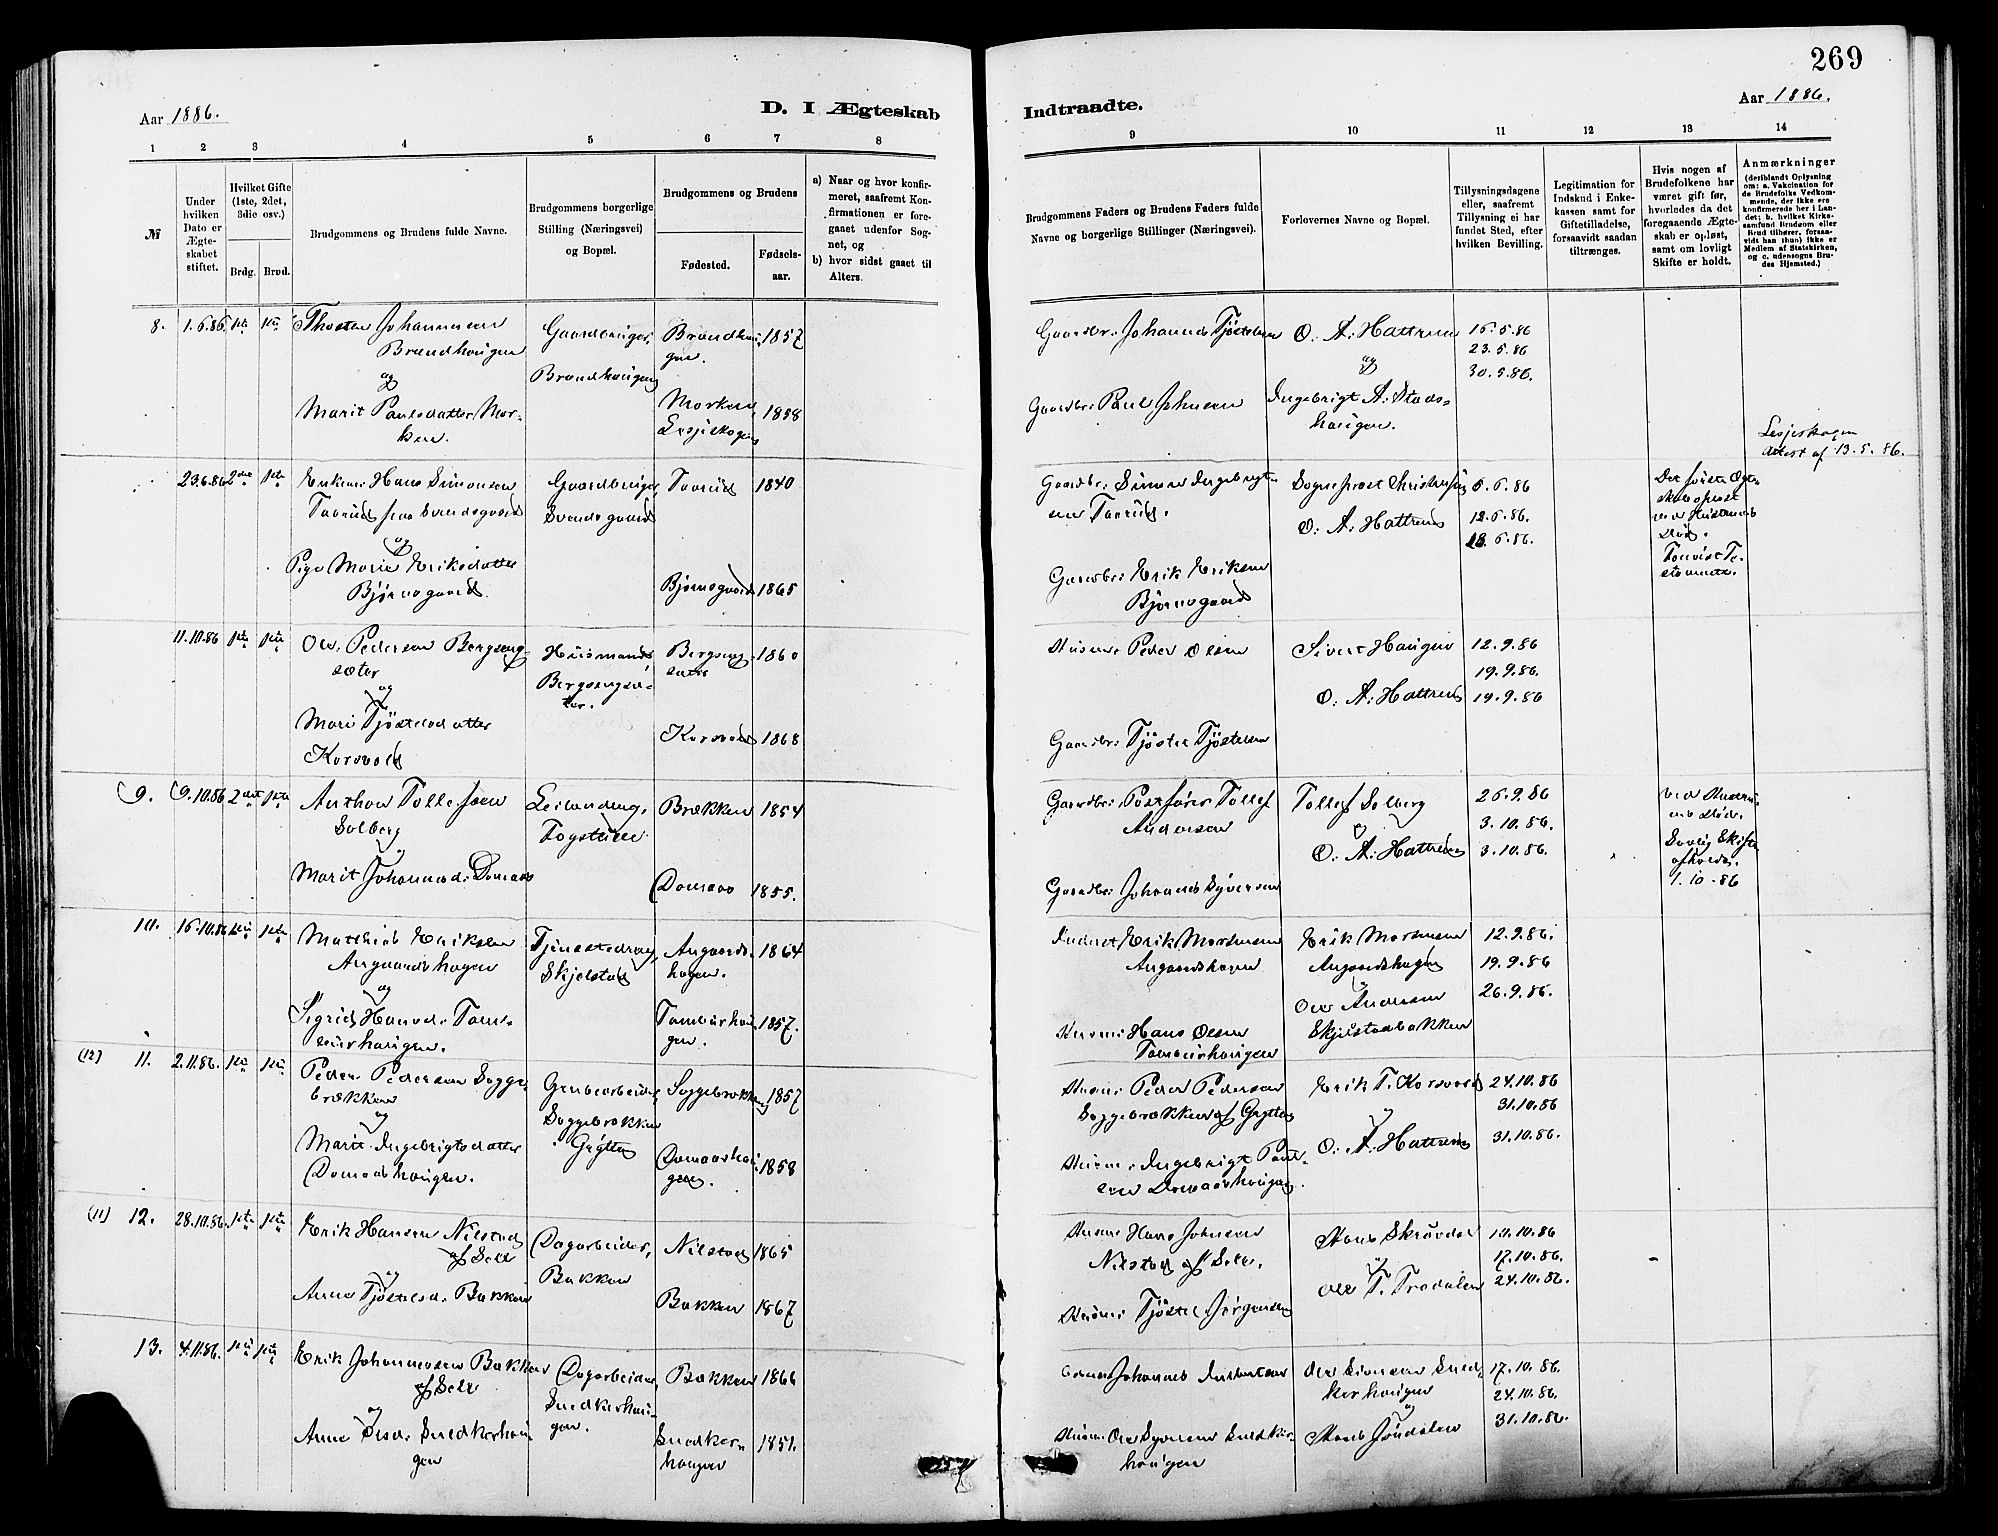 269
Aar 1886.
D. I Ægteskab
Indtraadte.
Aar 1886.
1 2 3 4 5 6 7 8
9 10 11 12 13 14
№
Under hvilken Dato er Ægteskabet stiftet.
Hvilket Gifte (1ste, 2det, 3die osv.)
Brdg. Brud.
Brudgommens og Brudens fulde Navne.
Brudgommens borgerlige Stilling (Næringsvei) og Bopæl.
Brudgommens og Brudens
Fødested.
Fødsels-aar.
a) Naar og hvor konfirmeret, saafremt Konfirmationen er foregaaet udenfor Sognet, og
b) hvor sidst gaaet til Alters.
Brudgommens Faders og Brudens Faders fulde Navne og borgerlige Stillinger (Næringsvei).
Forlovernes Navne og Bopæl.
Tillysningsdagene eller, saafremt Tillysning ei har fundet Sted, efter hvilken Bevilling.
Legitimation for Indskud i Enkekassen samt for Giftetilladelse, forsaavidt saadan tiltrænges.
Hvis nogen af Brudefolkene har været gift før, hvorledes da det foregaaende Ægteskab er opløst, samt om lovligt Skifte er holdt.
Anmærkninger (deriblandt Oplysning om: a. Vakcination for de Brudefolks Vedkommende, der ikke ere konfirmerede her i Landet; b. hvilket Kirkesamfund Brudgom eller Brud tilhører, forsaavidt han (hun) ikke er Medlem af Statskirken, og c. udensogns Brudes Hjemsted.)
8. 1.6.86. 1ste 1ste Thosten Johannesen Gaardbruger, Brændhau- 1857
Brændhougen Brændhougen gen.
og
Marit Paulsdatter Mor- Morken 1858
ken. Lesjeskogen
Gaardbr: Johannes Tjøstelsen O. A. Hattrem 16.5.86
og 23.5.86
30.5.86.
Gaardbr: Paul Johnsen Ingebrigt A. Stads-
hougen.
Lesjeskogen
Attest af 13.5.86.
23.6.86 2det 1ste Enkem: Hans Simonsen Gaardbruger, Taarud 1840
Taarud fra Svendsgaard Svendsgaard
og
Pige Marie Eriksdatter Bjørnsgaard 1865
Bjørnsgaard.
Gaardbr: Simen Ingebrigt- Sogneprest Christensen 6.6.86
sen Taarud. O. A. Hattrem 12.6.86.
18.6.86.
Gaardbr: Erik Eriksen
Bjørnsgaard
Det første Ægte-
skab opløst
ved Hustruens
Død.
11.10.86 1ste 1ste Ole Pedersen Bergseng- Husmand Bergseng- 1860
sæter Bergsengsæ- sæter
og ter.
Mari Tjøstelsdatter Korsvold 1868
Korsvold
Husm: Peder Olsen Sivert Haugen 12.9.86
19.9.86.
O. A. Hattrem 19.9.86
Gaardbr: Tjøstel Tjøstelsen
(9. (9.10.86 2det 1ste Anthon Tollefsen Leilending, Brækken 1854
Solberg Fogstuen
og
Marit Johannesd. Domaas Domaas 1855.
Gaardbr: Tollef Tollef Solberg 26.9.86
Andersen og 3.10.86.
O. A. Hattrem 3.10.86.
Gaardbr: Johannes Syversen
ved Hustru-
ens Død.
Lovlig Skifte
afholdt.
1.10.86
10. 16.10.86 1ste 1ste Mathias Eriksen Tjenestedreng, Angaards- 1864
Angaardshagen Skjelstad hagen.
og
Sigrid Hansd. Tam- Tamburhau- 1857.
burhaugen. gen.
Inderst Erik Mortensen Erik Mortensen 12.9.86.
Angaardshagen Angaardshagen 19.9.86
og
Ole Andersen 26.9.86.
Husm: Hans Olsen Skjelstadbakken
Tamburhaugen
(12) 11. 2.11.86. 1ste 1ste Peder Pedersen Sogge- Grubearbeider, Soggebrækken 1857
brækken Soggebrækken
og i Grytten
Marit Ingebrigtsdatter Domaashau- 1858
Domaashaugen. gen.
Husm: Peder Pedersen Erik T. Korsvold 24.10.86
Soggebrækken af Grytten og 31.10.86
O. A. Hattrem 31.10.86.
Husm: Ingebrigt Paul-
sen Domaashaugen
(11) 12. 28.10.86. 1ste 1ste Erik Hansen Nilstad Dagarbeider, Nilstad 1865
af Sell Bakken
og
Anne Tjøstelsd. Bakken Bakken 1867
Husm: Hans Johnsen Hans Skruvdal 10.10.86
Nilstad af Sell. og 17.10.86.
Ole T. Trodalen 24.10.86.
Husm: Tjøstel Jørgensen
13. 4.11.86. 1ste 1ste Erik Johannesen Bakken Dagarbeider, Bakken 1866
af Sell Snedkerhau-
og gen.
Anne Olsd. Snedkerhau- Snedker- 1851.
gen haugen
Johannes Ole Simensen Sned- 17.10.86
kerhaugen 24.10.86.
og
Husm: Ole Syversen Snedker- Hans Jøndalen 31.10.86.
haugen